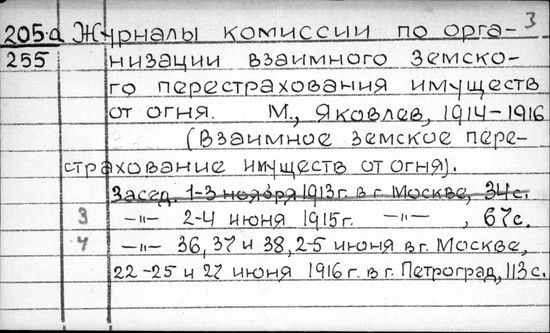 205.а Журналы комиссии по орга- 3
255 низации взаимного земско-
го перестрахования имуществ
от огня. М., Яковлев, 1914-1916
(Взаимное земское пере-
страхование имуществ от огня).
Засед. 1-3 ноября 1913г. в г. Москве, 34с.
3 -"- 2-4 июня 1915г. -"-, 67с.
4 -"- 36, 37 и 38, 2-5 июня в г. Москве,
22-25 и 27 июня 1916г. в г. Петроград, 113с.